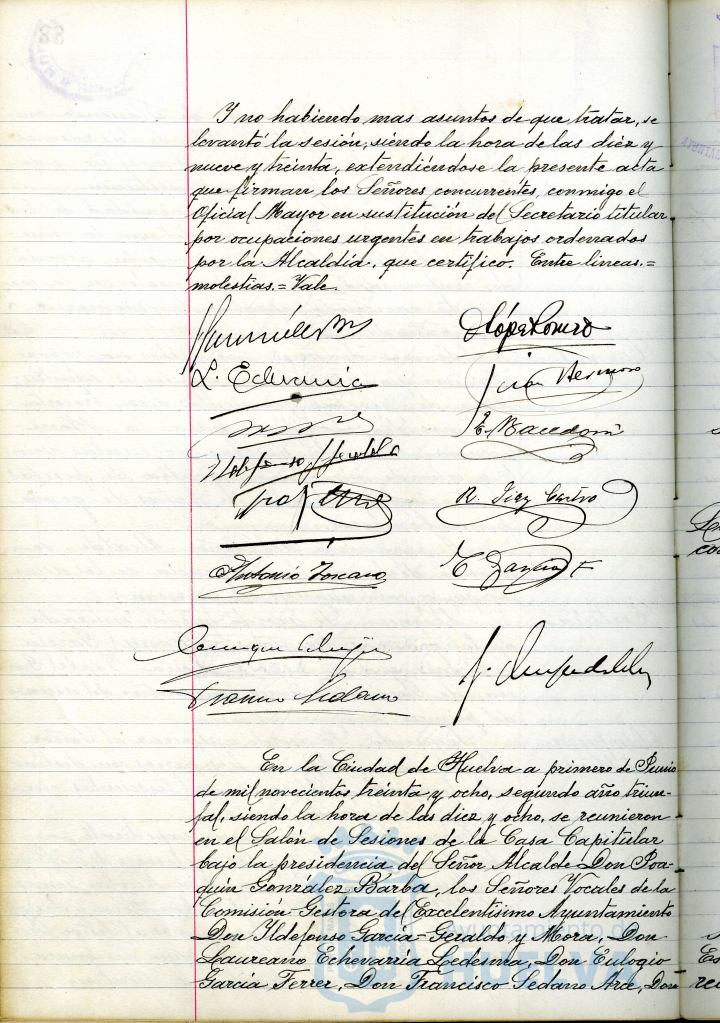 Y no habiendo mas asuntos de que tratar, se
levantó la sesión, siendo la hora de las diez y
nueve y treinta, extendiéndose la presente acta
que firman los Señores concurrentes, conmigo el
Oficial Mayor en sustitución del Secretario titular
por ocupaciones urgentes en trabajos ordenados
por la Alcaldía, que certifico. Entre lineas.=
molestias.= Vale.
López Romero
L. Echevarria
R. Diez Castro
Antonio Toscano
En la Ciudad de Huelva a primero de Junio
de mil novecientos treinta y ocho, segundo año triun-
fal, siendo la hora de las diez y ocho, se reunieron
en el Salón de Sesiones de la Casa Capitular
bajo la presidencia del Señor Alcalde Don Joa-
quín González Barba, los Señores Vocales de la
Comisión Gestora del Excelentísimo Ayuntamiento
Don Ildefonso García-Geraldo y Mora, Don
Laureano Echevarría Ledesma, Don Eulogio
García Ferrer, Don Francisco Sedano Arce, Don
Ayuntamiento de
HUELVA